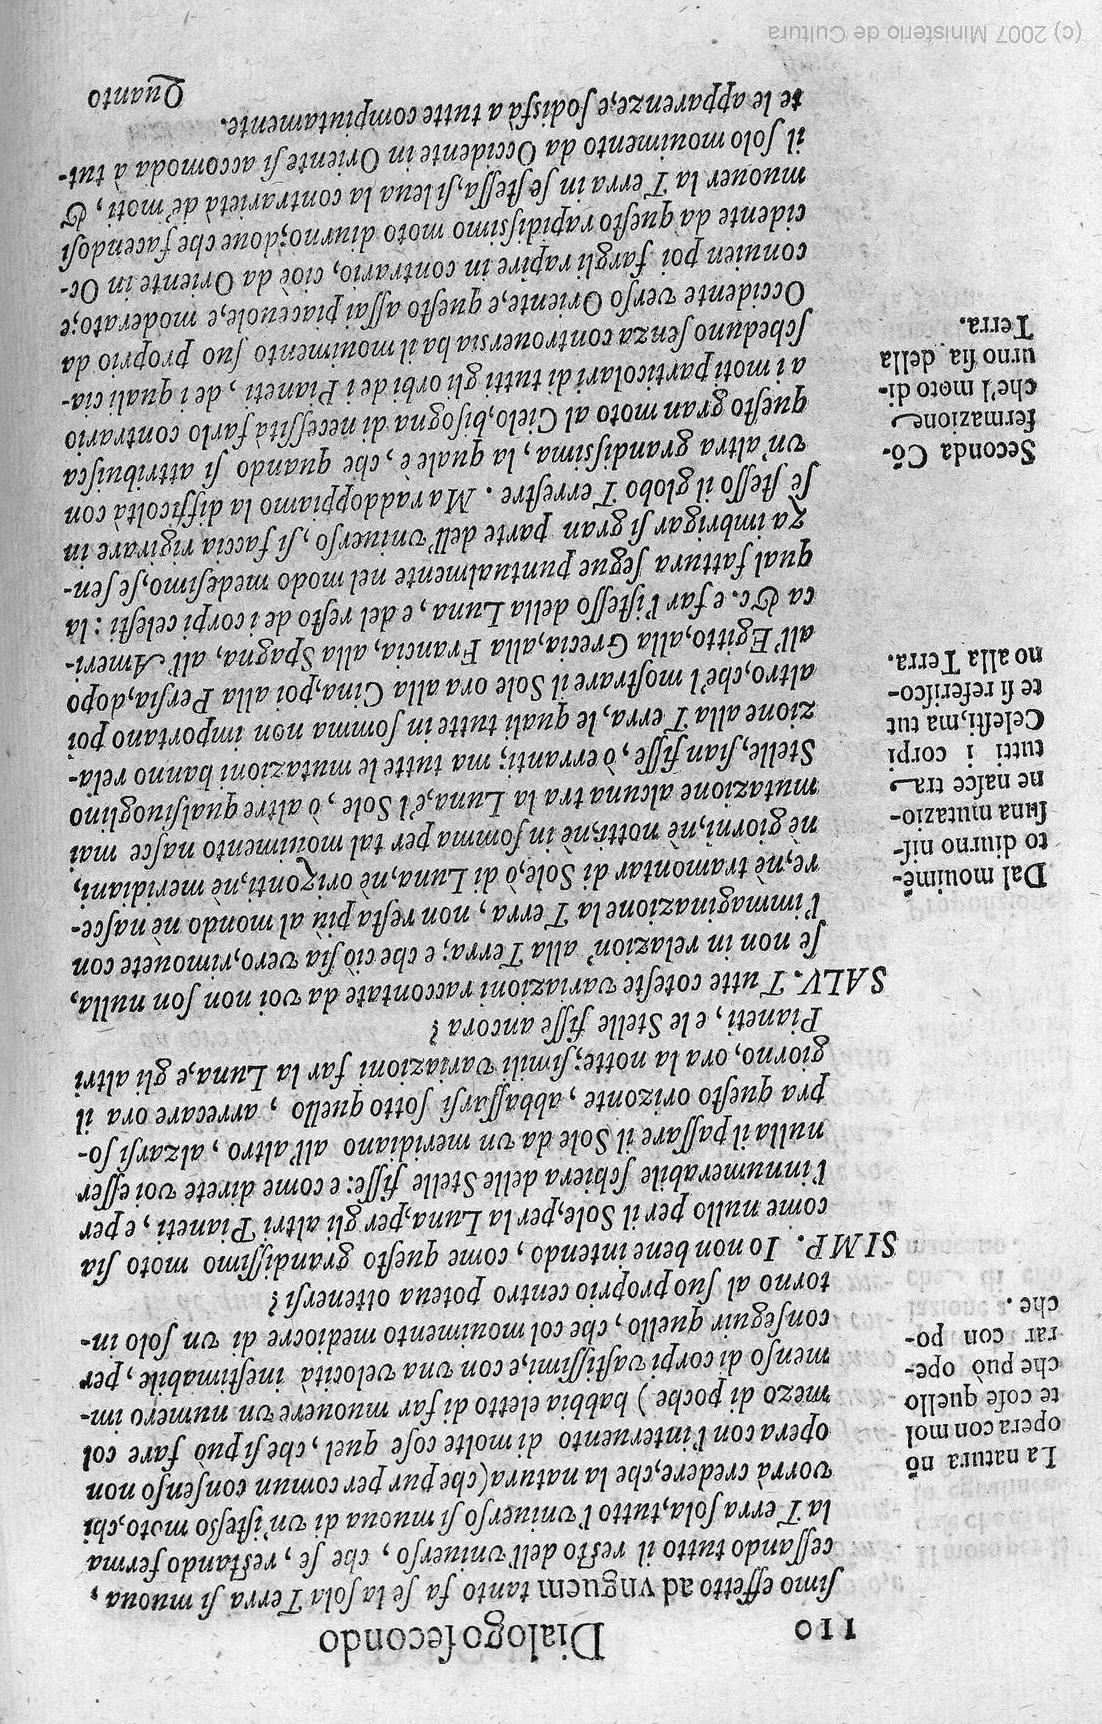 110
Dialogo secondo
simo effetto ad vnguem tanto fa se la sola Terra si muoua,
cessando tutto il resto dell'vniuerso, che se, restando ferma
la Terra sola, tutto l'vniuerso si muoua di vn'istesso moto, chi
vorrà credere, che la natura (che pur per comun consenso non
opera con l'interuento di molte cose quel, che si può fare col
mezo di poche) habbia eletto di far muouere vn numero im-
menso di corpi vastissimi, e con vna velocità inestimabile, per
conseguir quello, che col mouimento mediocre di vn solo in-
torno al suo proprio centro poteua ottenersi?
SIMP. Io non bene intendo, come questo grandissimo moto sia
come nullo per il Sole, per la Luna, per gli altri Pianeti, e per
l'innumerabile schiera delle Stelle fisse: e come direte voi esser
nulla il passare il Sole da vn meridiano all'altro, alzarsi so-
pra questo orizonte, abbassarsi sotto quello, arrecare ora il
giorno, ora la notte; simili variazioni far la Luna, e gli altri
Pianeti, e le Stelle fisse ancora?
SALV. Tutte coteste variazioni raccontate da voi non son nulla,
se non in relazion' alla Terra; e che ciò sia vero, rimouete con
l'immaginazione la Terra, non resta più al mondo nè nasce-
re, nè tramontar di Sole, ò di Luna, nè orizonti, nè meridiani,
nè giorni, nè notti, nè in somma per tal mouimento nasce mai
mutazione alcuna tra la Luna, e'l Sole, ò altre qualsiuoglino
Stelle, sian fisse, ò erranti; ma tutte le mutazioni hanno rela-
zione alla Terra, le quali tutte in somma non importano poi
altro, che'l mostrare il Sole ora alla Cina, poi alla Persia, dopo
all'Egitto, alla Grecia, alla Francia, alla Spagna, all'Ameri-
ca &c. e far l'istesso della Luna, e del resto de i corpi celesti: la
qual fattura segue puntualmente nel modo medesimo, se sen-
za imbrigar sì gran parte dell'vniuerso, si faccia rigirare in
se stesso il globo Terrestre. Ma raddoppiamo la difficoltà con
vn'altra grandissima, la quale è, che quando si attribuisca
questo gran moto al Cielo, bisogna di necessità farlo contrario
a i moti particolari di tutti gli orbi de i Pianeti, de i quali cia-
scheduno senza controuersia ha il mouimento suo proprio da
Occidente verso Oriente, e questo assai piaceuole, e moderato; e
conuien poi fargli rapire in contrario, cioè da Oriente in Oc-
cidente da questo rapidissimo moto diurno; doue che facendosi
muouer la Terra in se stessa, si leua la contrarietà de' moti, &
il solo mouimento da Occidente in Oriente si accomoda à tut-
te le apparenze, e sodisfà a tutte compiutamente.
Quanto
La natura nō
opera con mol
te cose quello
che può ope-
rar con po-
che.
Dal mouimē-
to diurno nis-
suna mutazio-
ne nasce tra
tutti i corpi
Celesti, ma tut
te si riferisco-
no alla Terra.
Seconda Cō-
fermazione
che'l moto di-
urno sia della
Terra.
(c) 2007 Ministerio de Cultura